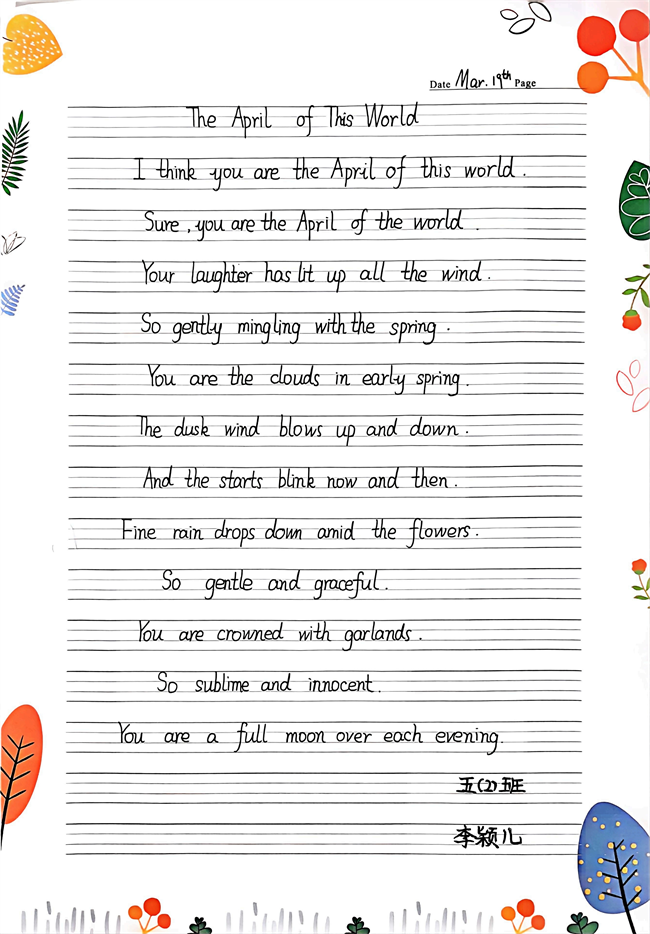 Date Mar. 19th Page
The April of This World
I think you are the April of this world.
Sure, you are the April of the world.
Your laughter has lit up all the wind.
So gently mingling with the spring.
You are the clouds in early spring.
The dusk wind blows up and down.
And the starts blink now and then.
Fine rain drops down amid the flowers.
So gentle and graceful.
You are crowned with garlands.
So sublime and innocent.
You are a full moon over each evening.
五(2)班
李颖儿